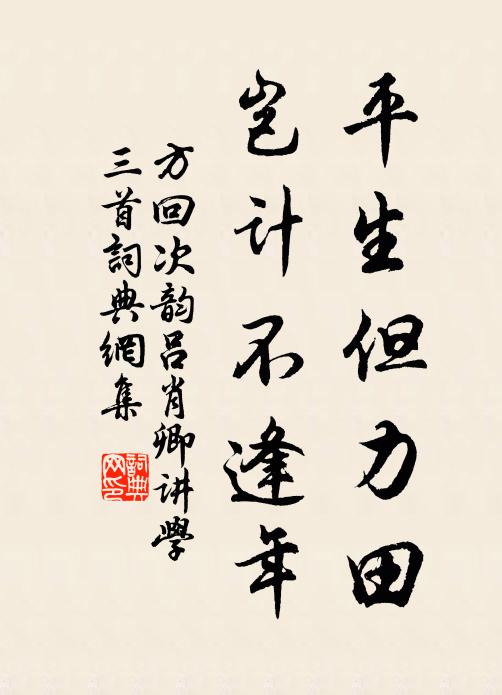 平生但力田
岂计不逢年
方回次韵吕肖卿讲学
三首詞典網集
詞典
网印